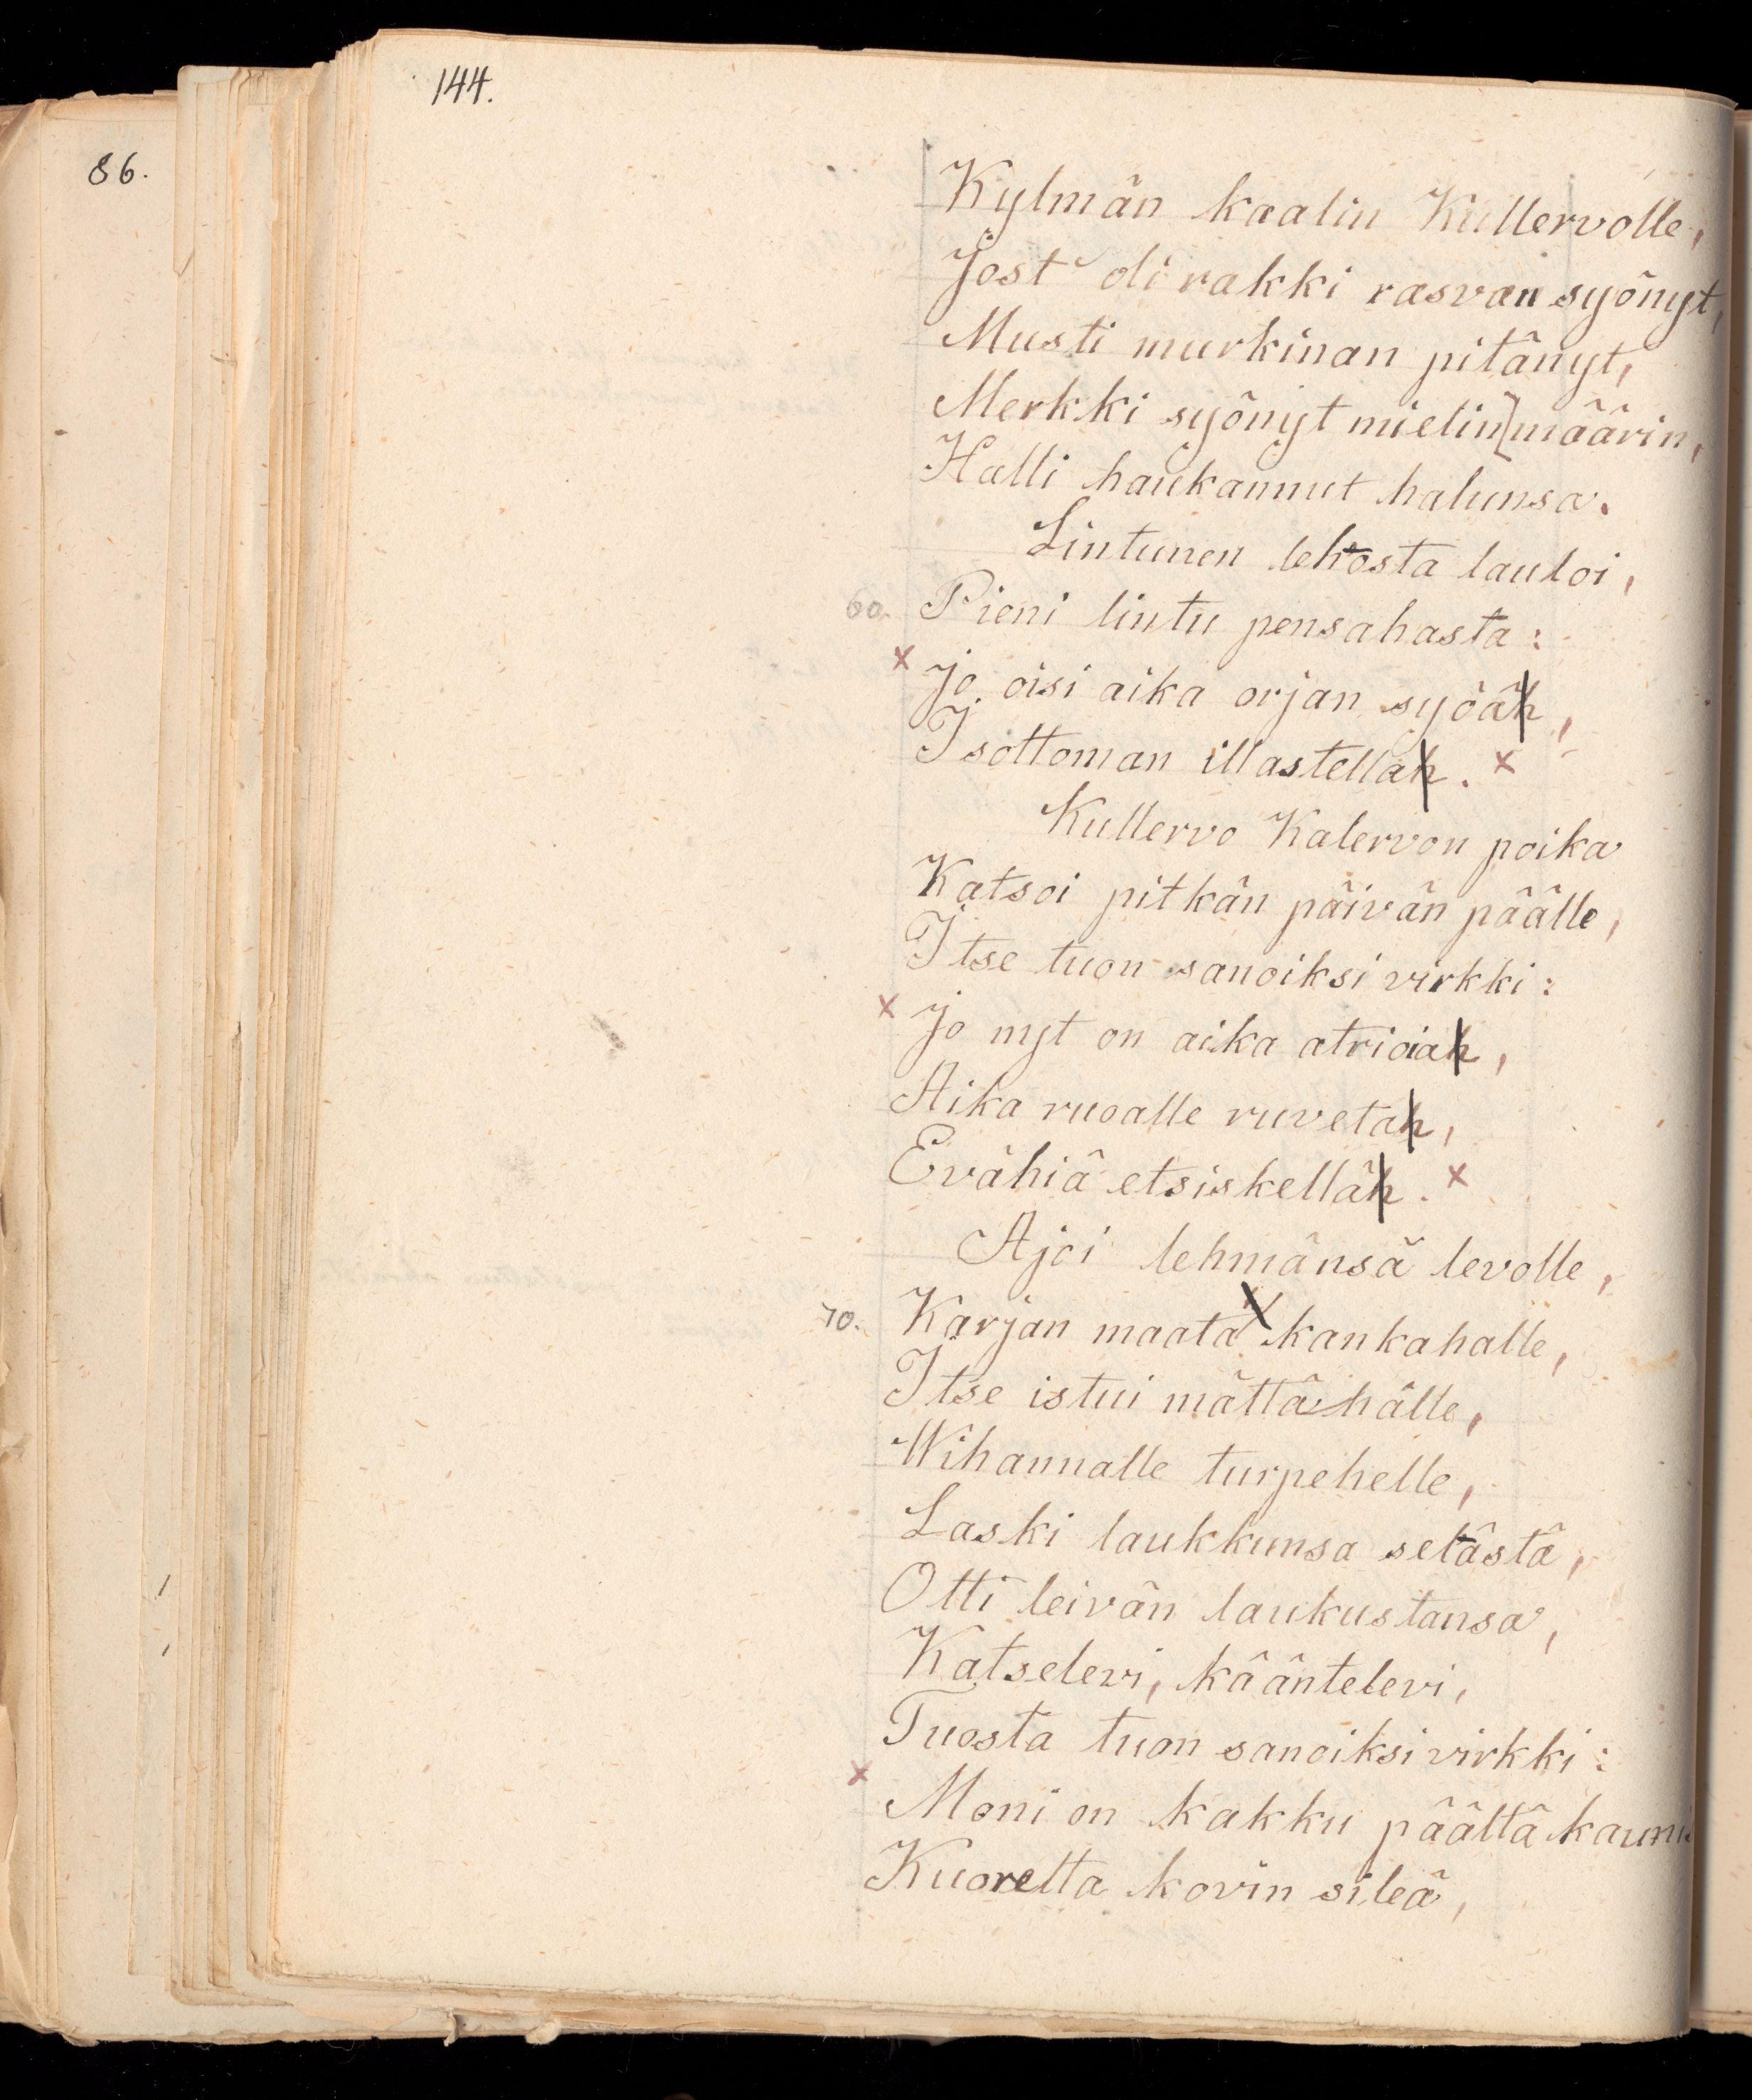 144.
86.
Kylmän kaalin Kullervolle,
Jost' oli rakki rasvan syönyt,
Musti murkinan pitänyt,
Merkki syönyt mielin määrin,
Halli haukannut halunsa.
Lintunen lehosta lauloi,
60. Pieni lintu pensahasta:
x Jo oisi aika orjan syöäh,
Isottoman illastellah. x
Kullervo Kalervon poika
Katsoi pitkän päivän päälle,
Itse tuon sanoiksi virkki:
x Jo nyt on aika atrioiah,
Aika ruoalle ruvetah,
Evähiä etsiskelläh. x
Ajoi lehmänsä levolle,
70. Karjan maata kankahalle,
Itse istui mättähälle,
Wihannalle turpehelle,
Laski laukkunsa selästä,
Otti leivän laukustansa,
Katselevi, kääntelevi,
Tuosta tuon sanoiksi virkki:
x Moni on kakku päältä kaunis
Kuorelta kovin sileä,